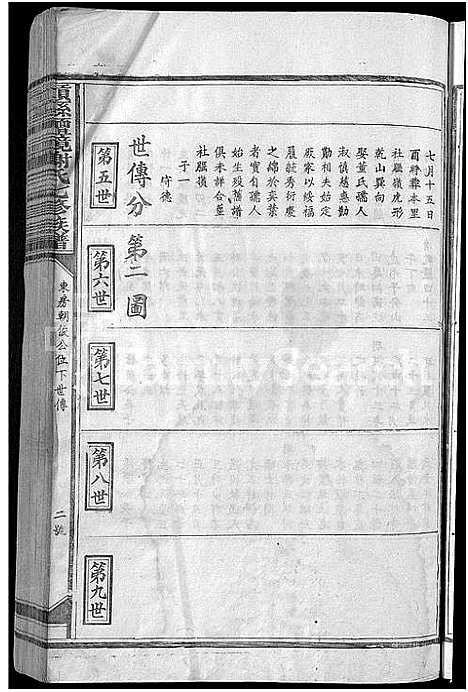 七月十五日
酉時葬本里
社腷嶺虎形
乾山巽向
娶董氏孺人
淑慎慈惠勤
勤相夫始定
厥家以綏福
履毓秀衍慶
之綿於奕葉
者實自孺人
始生歿舊譜
俱未詳合塟
社腷嶺
子一
守德
世傳分 第二圖
第五世
第六世
第七世
第八世
第九世
氏 修族譜
東房朝 公位下世傳
二號
FamilySearch